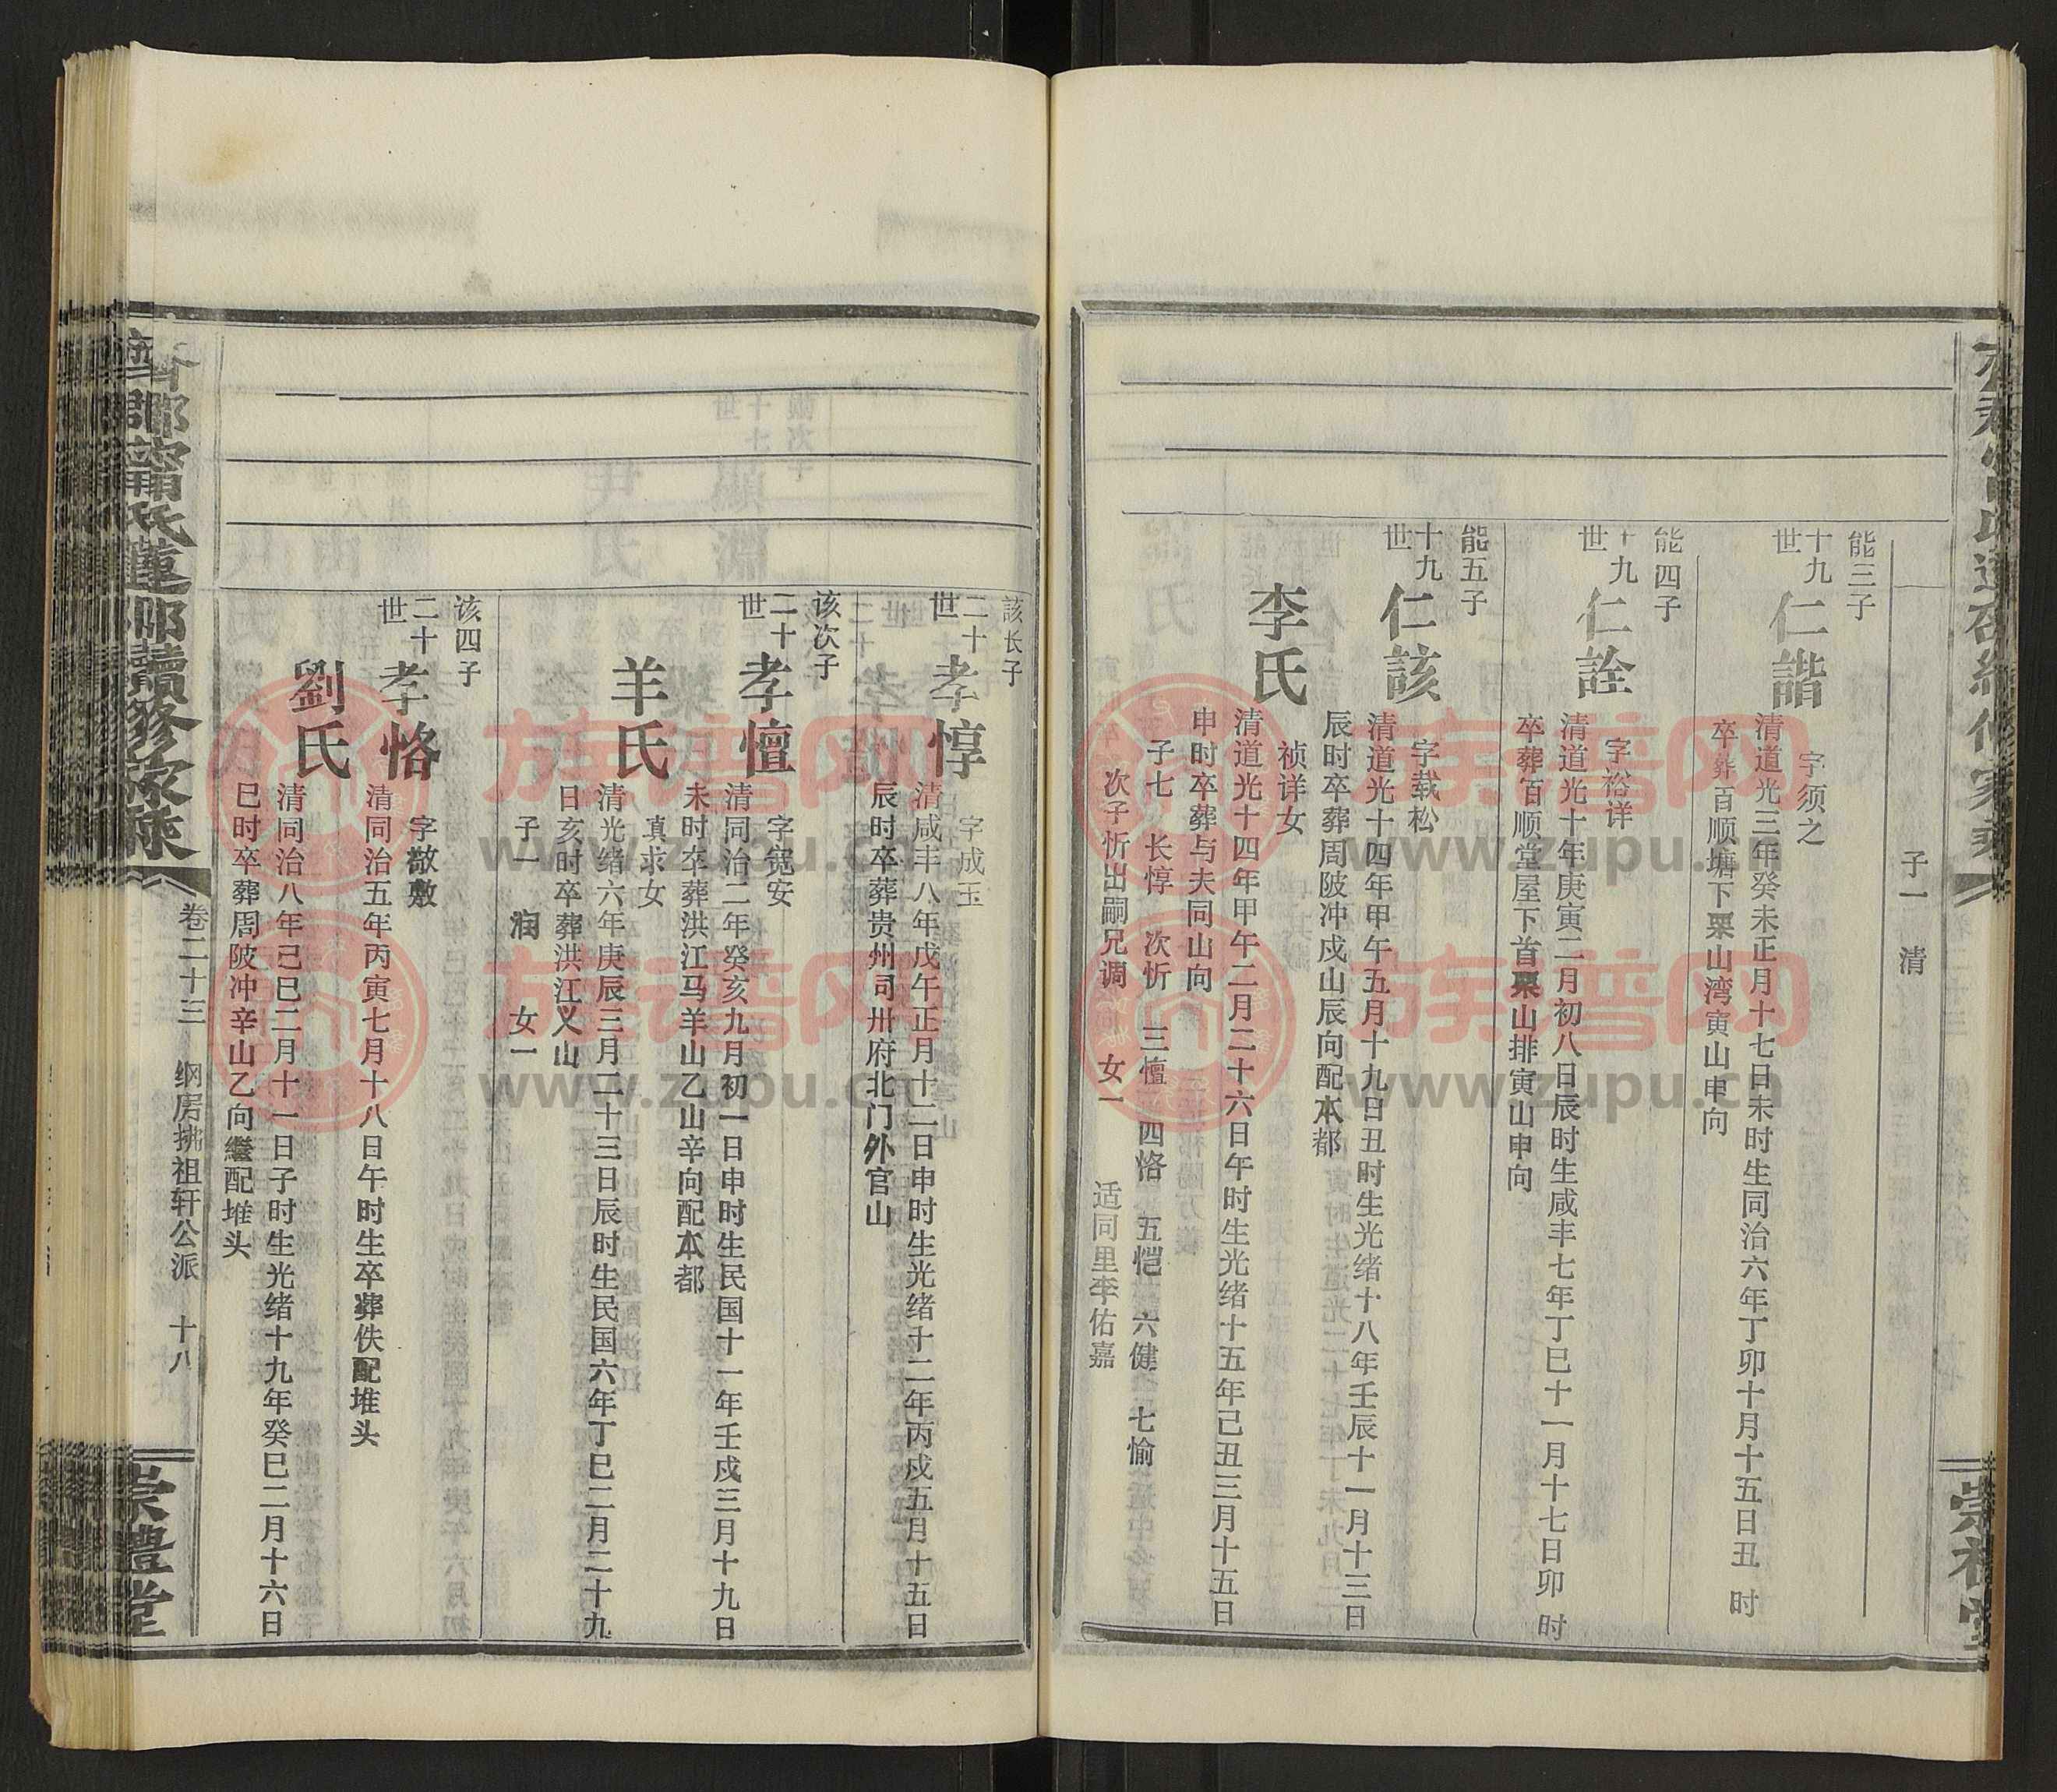 子一 清
能三子
十九世
仁諧
字须之
清道光三年癸未正月十七日未时生同治六年丁卯十月十五日丑时
卒葬百顺塘下栗山湾寅山申向
能四子
十九世
仁詮
字裕详
清道光十年庚寅二月初八日辰时生咸丰七年丁巳十一月十七日卯时
卒葬百顺堂屋下首栗山排寅山申向
能五子
十九世
仁該
字载松
清道光十四年甲午五月十九日丑时生光绪十八年壬辰十一月十三日
辰时卒葬周陂冲戍山辰向配本都
李氏
祯详女
清道光十四年甲午二月二十六日午时生光绪十五年己丑三月十五日
申时卒葬与夫同山向
子七 长惇 次忻 三憻 四恪 五恺 六健 七愉
次子忻出嗣兄调 女一 适同里李佑嘉
該长子
二十世
孝惇
字成玉
清咸丰八年戊午正月十二日申时生光绪十二年丙戍五月十五日
辰时卒葬贵州司卅府北门外官山
该次子
二十世
孝憻
字宽安
清同治二年癸亥九月初一日申时生民国十一年壬戍三月十九日
未时卒葬洪江马羊山乙山辛向配本都
羊氏
真求女
清光绪六年庚辰三月二十三日辰时生民国六年丁巳二月二十九
日亥时卒葬洪江义山
子一 润 女一
该四子
二十世
孝恪
字敬敷
清同治五年丙寅七月十八日午时生卒葬佚配堆头
劉氏
清同治八年己巳二月十一日子时生光绪十九年癸巳二月十六日
巳时卒葬周陂冲辛山乙向繼配堆头
甯氏蓮邵續修家乘
卷二十三 纲房拂祖轩公派 十八
崇禮堂
族谱网
www.zupu.cn
族谱网
www.zupu.cn
族谱网
www.zupu.cn
族谱网
www.zupu.cn